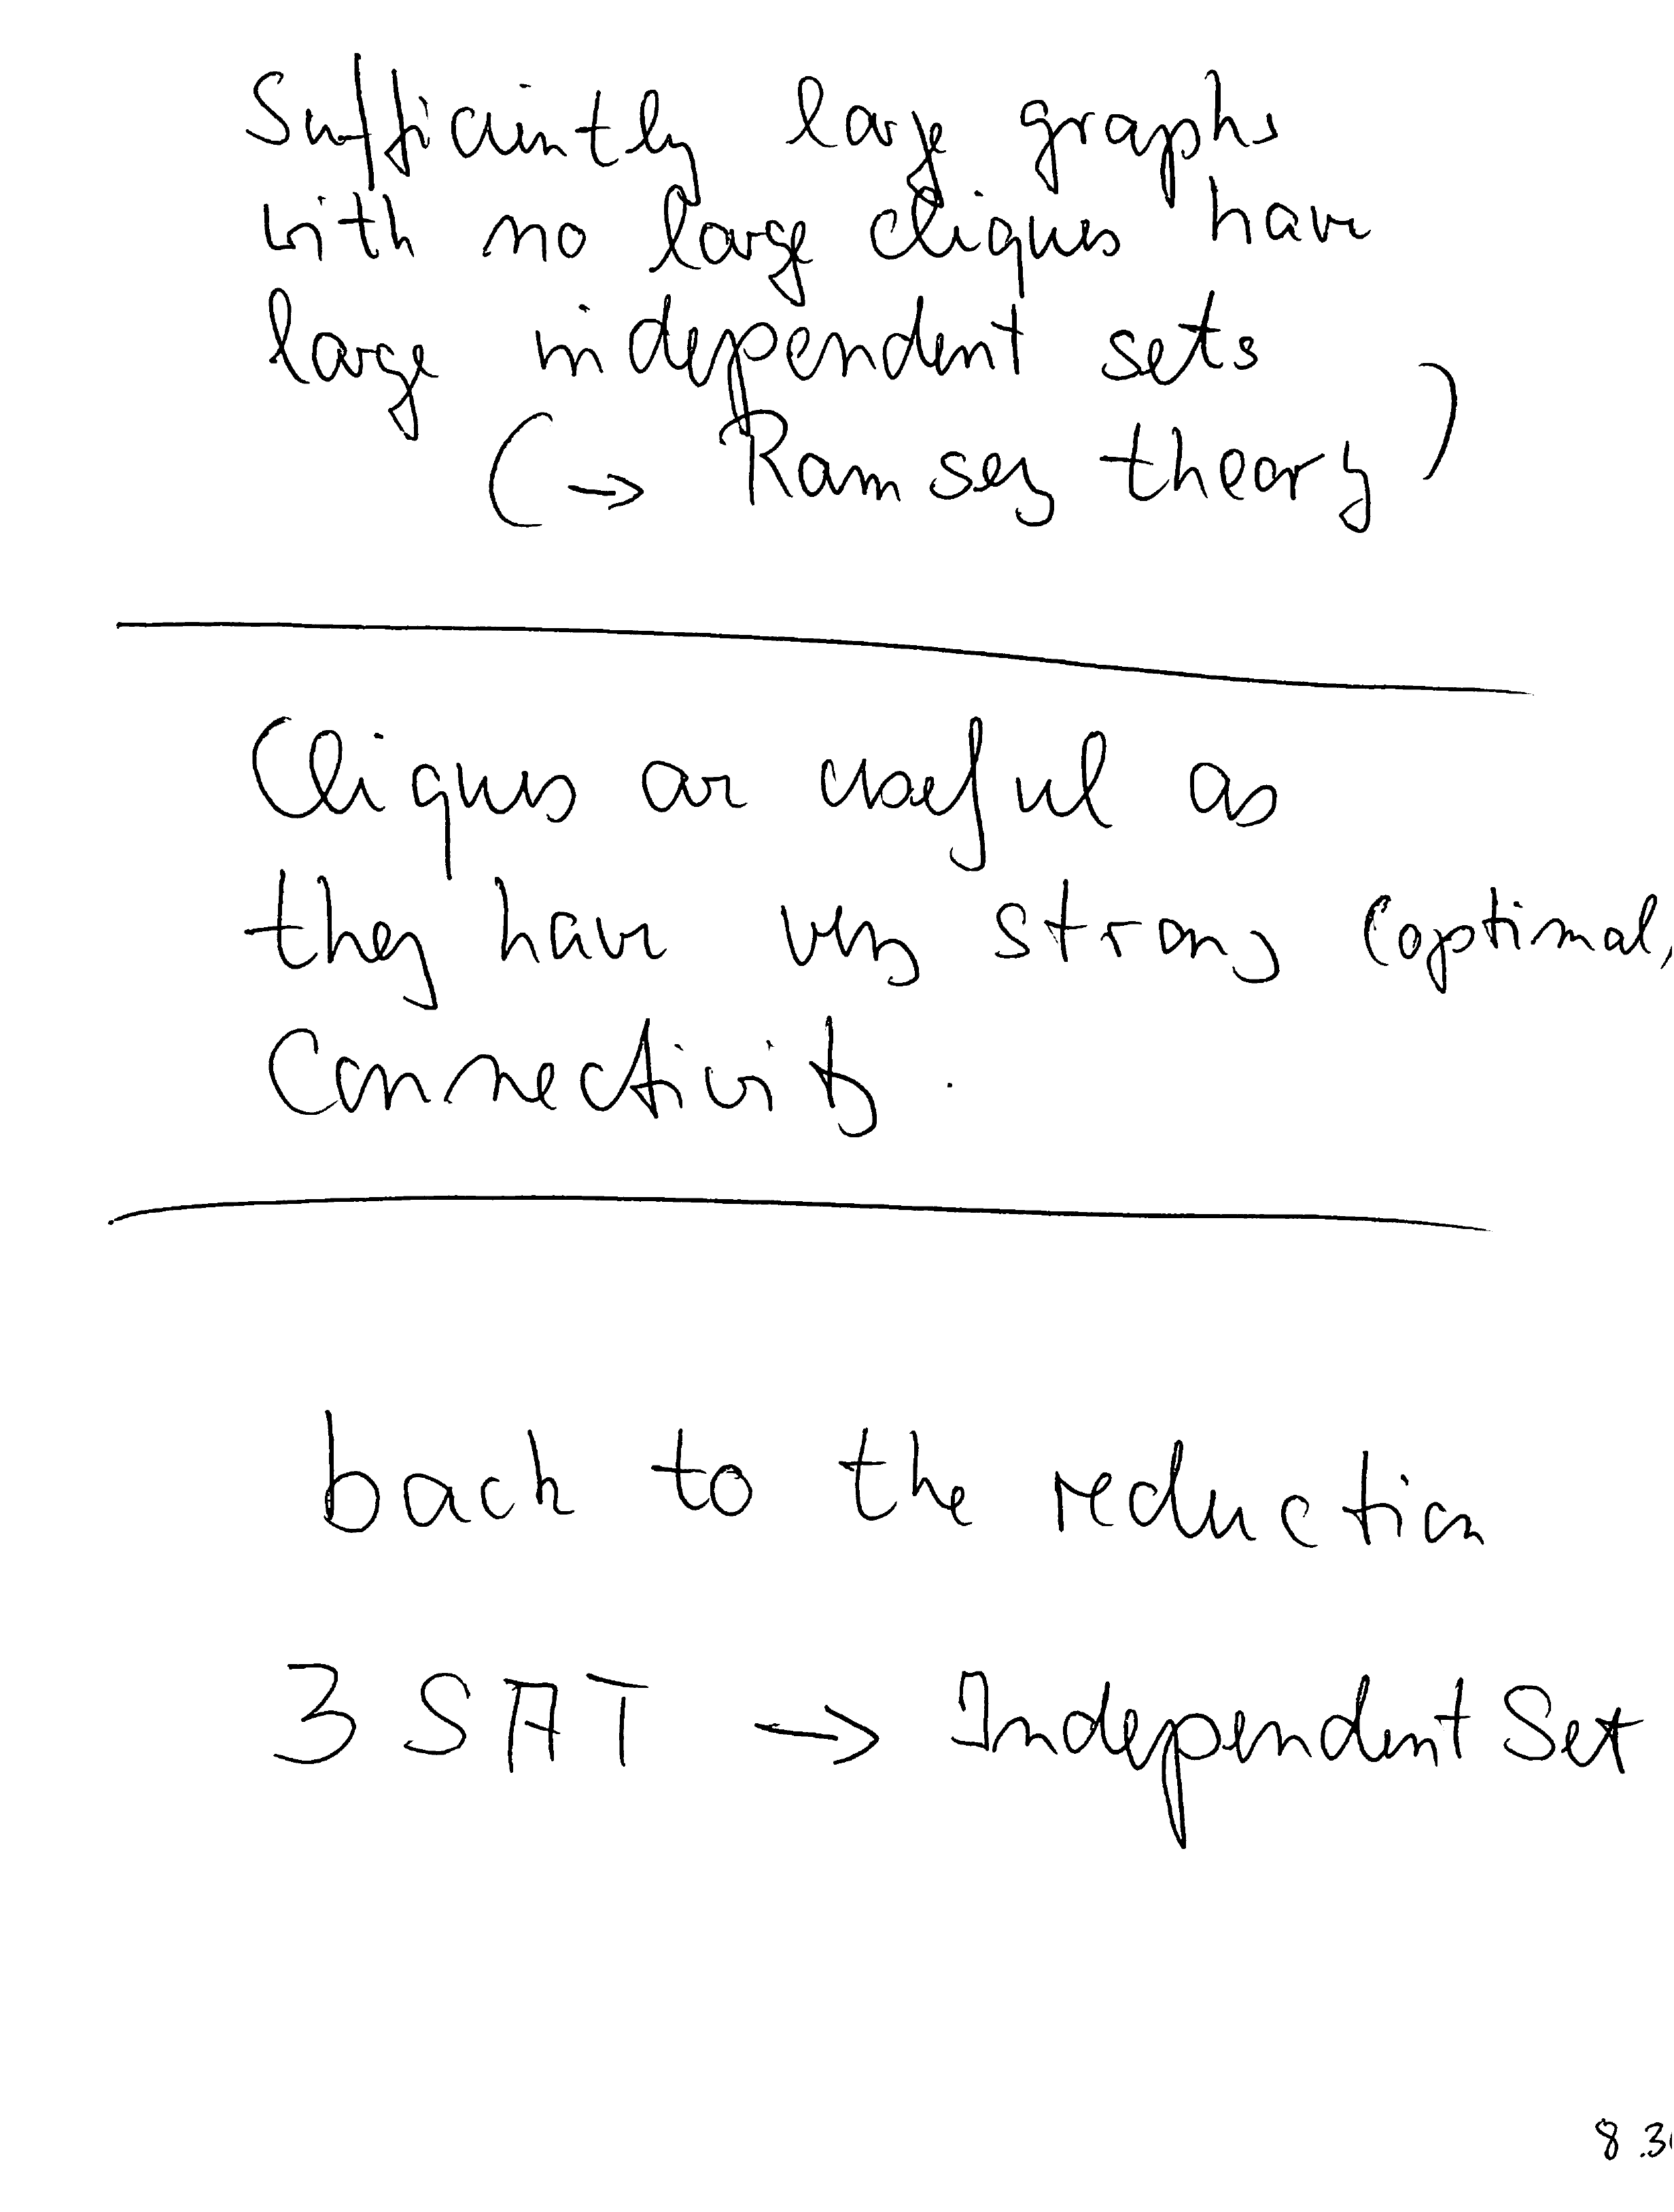 Sufficiently large graphs
with no large cliques have
large independent sets
(→ Ramsey theory)
Cliques are useful as
they have very strong (optimal,
Connectivity.
back to the reduction
3SAT → Independent Set
8.3